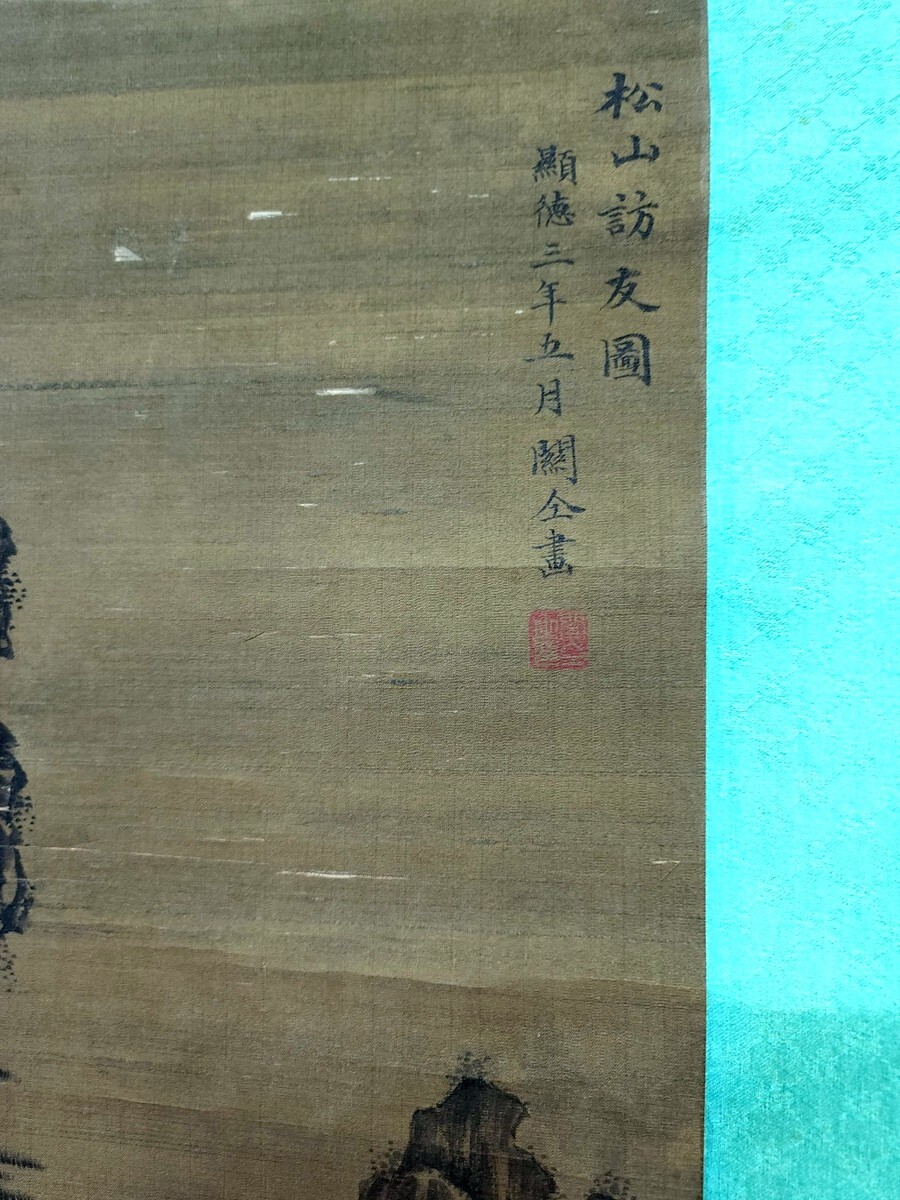 松山訪友圖
顯德三年五月關仝畫